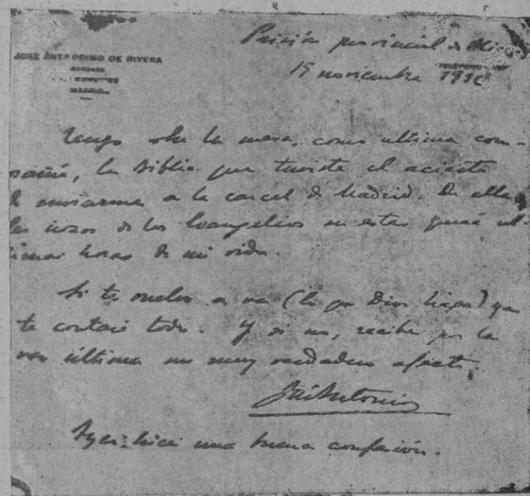 JOSÉ ANTº PRIMO DE RIVERA
ABOGADO
MADRID
Prisión provincial de
15 noviembre 1936
Tengo sobre la mesa, como ultima com-
pañía, la Biblia que tuviste el acierto
de enviarme a la carcel de Madrid. De ella
leo trozos de los Evangelios en estas quizá úl-
timas horas de mi vida.
Si te vuelvo a ver (lo que Dios haga) ya
te contaré todo. Y si no, recibe por la
vez última un muy verdadero afecto.
José Antonio
Ayer hice una buena confesión.